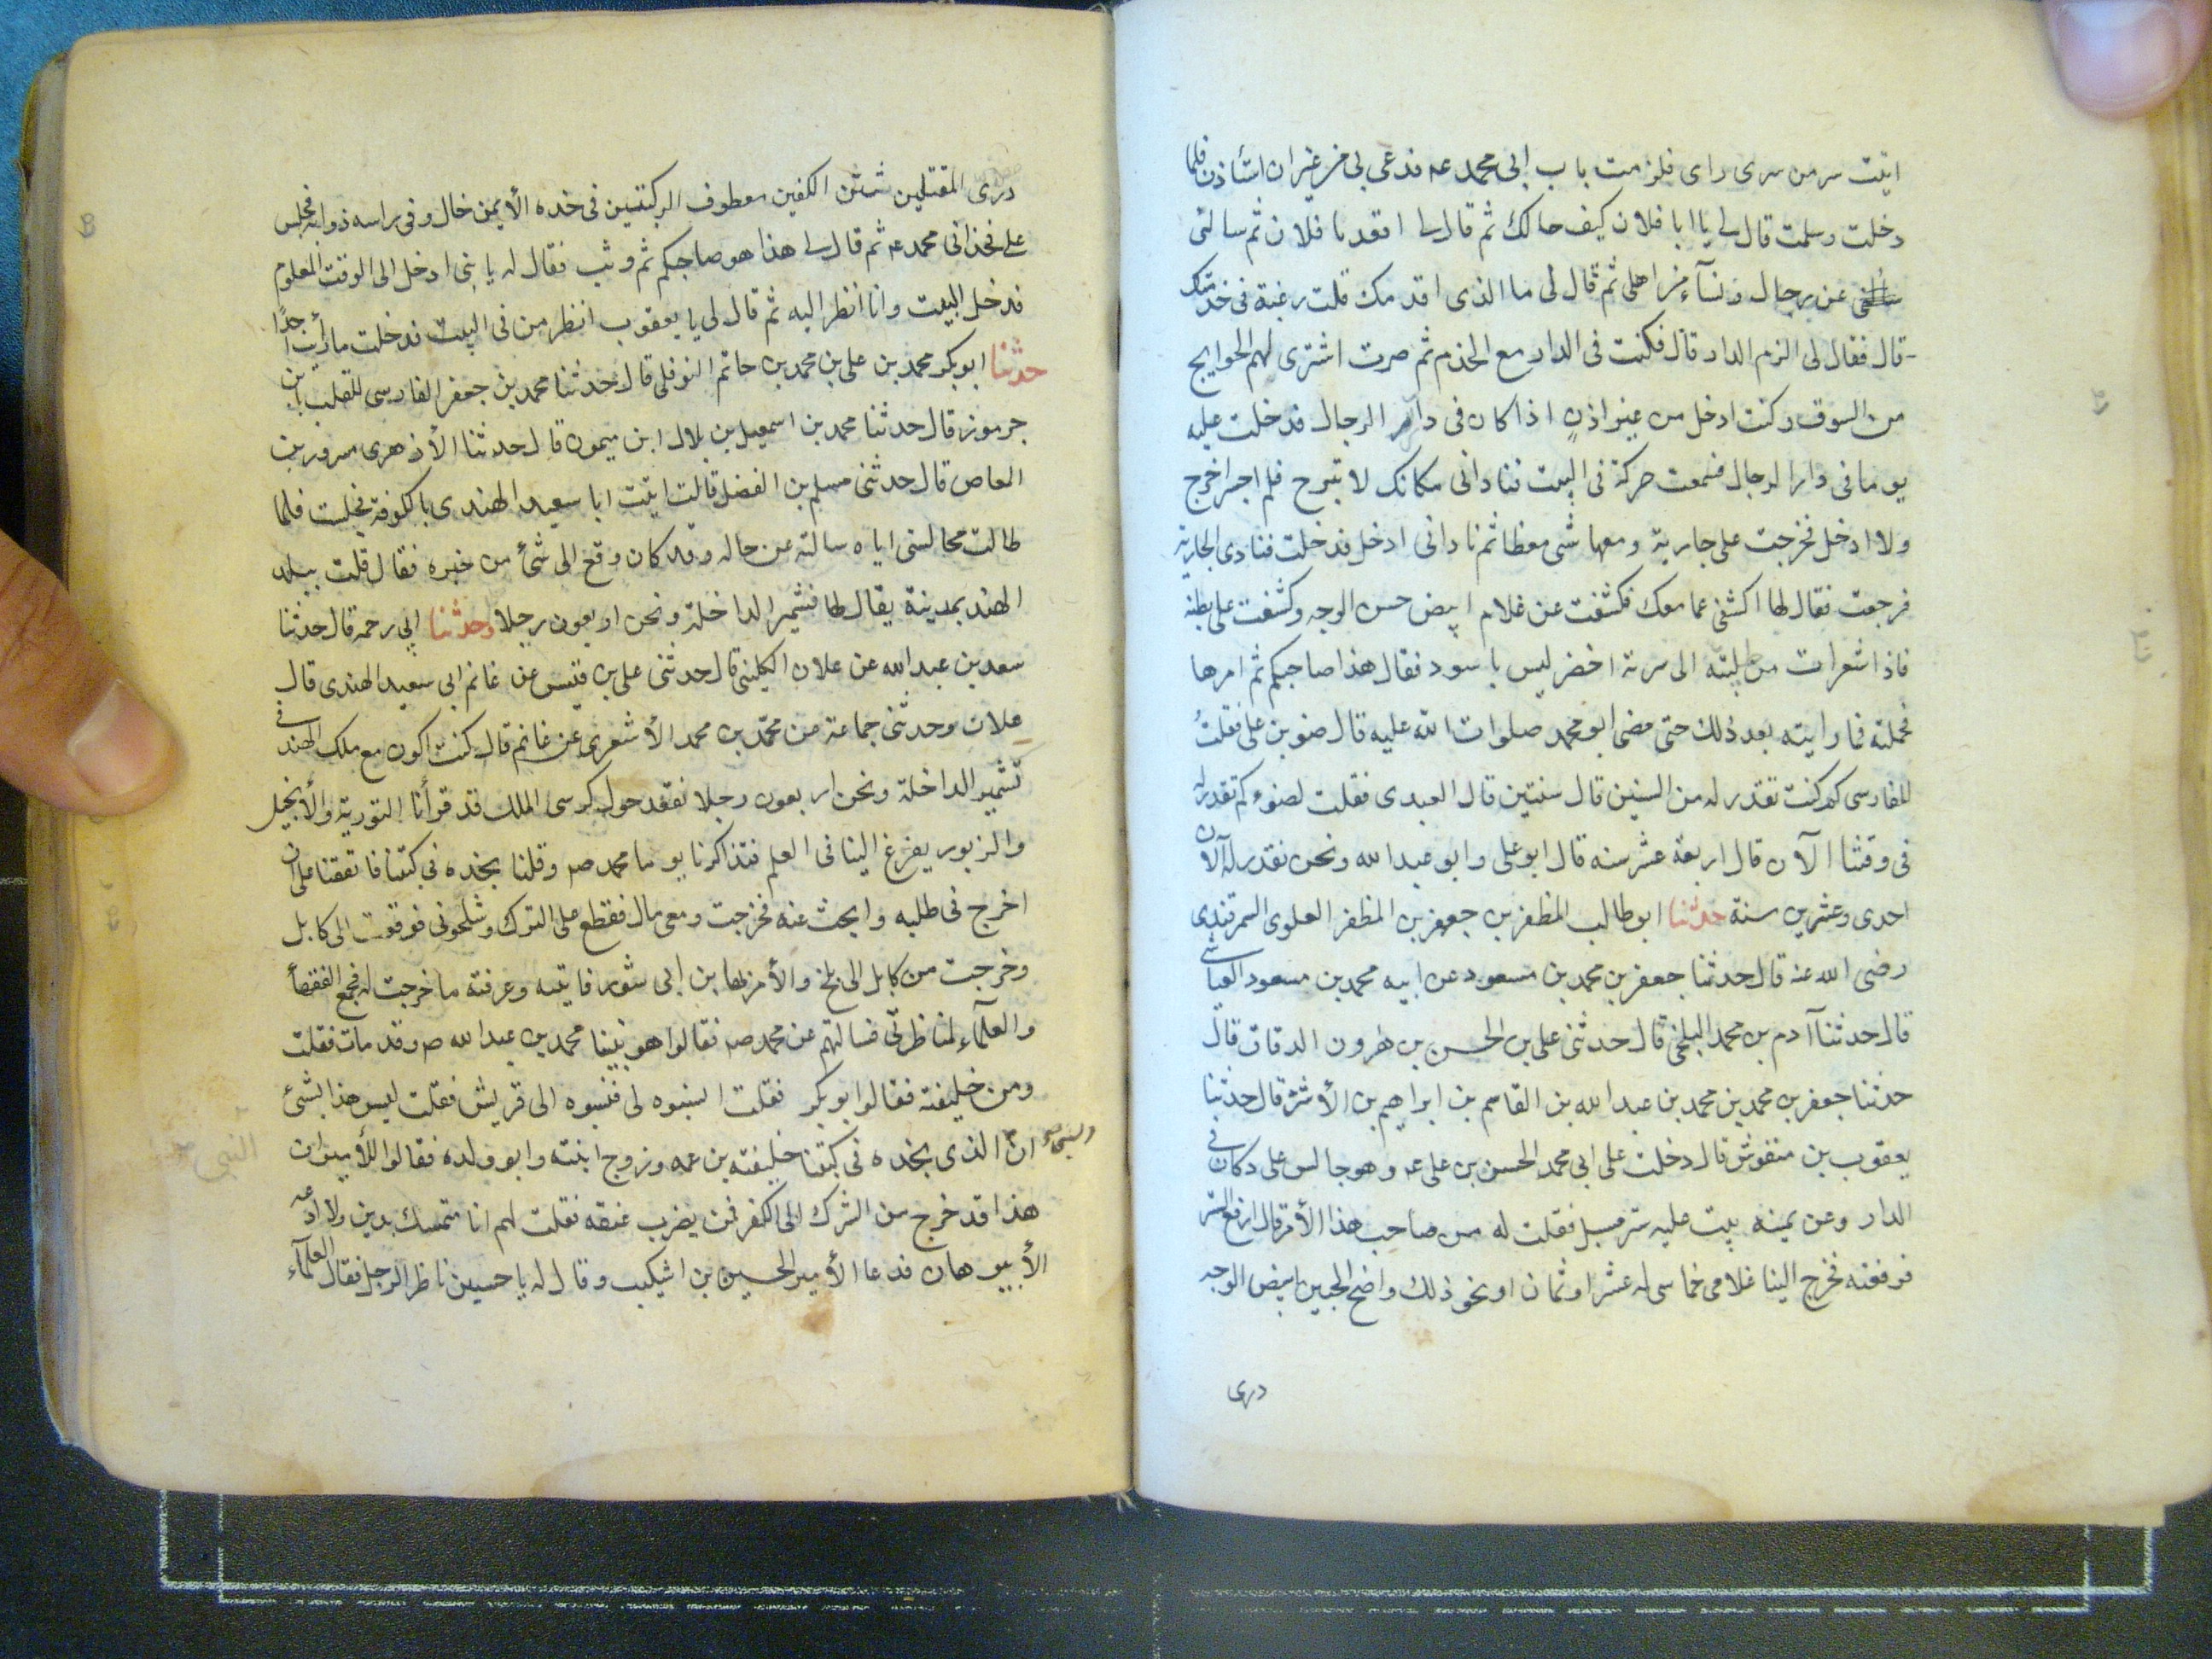 اتيت سر من سرى راى فلزمت باب ابى محمد عه فدعى بى من غير ان استأذن فلما
دخلت وسلمت قال لى يا ابا فلان كيف حالك ثم قال لى اقعد يا فلان ثم سالنى
عن رجال ونسآء من اهلى ثم قال لى ما الذى اقدمك قلت رغبة فى خدمتك
قال فقال لى الزم الدار قال فكنت فى الدار مع الخدم ثم صرت اشترى لهم الحوايج
من السوق وكنت ادخل من غير اذنٍ اذا كان فى دار الرجال فدخلت عليه
يوما فى دار الرجال فسمعت حركة فى البيت فنادانى مكانك لا تبرح فلم اجسر اخرج
ولا ادخل فخرجت على جارية ومعها شى مغطا ثم نادانى ادخل فدخلت فنادى الجارية
فرجعت فقال لها اكشفى عما معك فكشفت عن غلام ابيض حسن الوجه وكشفت على بطنه
فاذا شعرات من لبته الى سرته اخضر ليس باسود فقال هذا صاحبكم ثم امرها
فحملته فما رايته بعد ذلك حتى مضى ابو محمد صلوات الله عليه قال ضو بن على فقلتُ
للفارسى كم كنت تقدر له من السنين قال سنتين قال العبدى فقلت لضوء كم تقدر له
فى وقتنا الآن قال اربعة عشر سنه قال ابو على وابو عبد الله ونحن نقدر له الآن
احدى وعشرين سنة حدثنا ابو طالب المظفر بن جعفر بن المظفر العلوى السمرقندى
رضى الله عنه قال حدثنا جعفر بن محمد بن مسعود عن ابيه محمد بن مسعود العياشى
قال حدثنا آدم بن محمد البلخى قال حدثنى على بن الحسن بن هرون الدقاق قال
حدثنا جعفر بن محمد بن محمد بن عبد الله بن القاسم بن ابراهيم بن الأشتر قال حدثنا
يعقوب بن منقوش قال دخلت على ابى محمد الحسن بن على عه وهو جالس على دكان فى
الدار وعن يمينه بيت عليه ستر مسبل فقلت له من صاحب هذا الأمر قال ارفع الستر
فرفعته فخرج الينا غلامى خماسى له عشر او ثمان او نحو ذلك واضح الجبين ابيض الوجه
درى
درى المقتلين شثن الكفين معطوف الركبتين فى خده الأيمن خال وفى راسه ذوابه فجلس
على فخذ ابى محمد عه ثم قال لى هذا هو صاحبكم ثم وثب فقال له يا بنى ادخل الى الوقت المعلوم
فدخل البيت وانا انظر اليه ثم قال لى يا يعقوب انظر من فى البيت فدخلت ما رأيت احدًا
حدثنا ابو بكر محمد بن على بن محمد بن حاتم النوفلى قال حدثنا محمد بن جعفر الفارسى الملقب بن
جرموز قال حدثنا محمد بن اسمعيل بن بلال ابن ميمون قال حدثنا الأزهرى مسرور بن
العاص قال حدثنى مسلم بن الفضل قالت اتيت ابا سعيد الهندى بالكوفة فجلست فلما
طالت مجالستى اياه سالته عن حاله وقد كان وقع الى شئ من خبره فقال قلت ببلد
الهند بمدينة يقال لها قشمير الداخلة ونحن اربعون رجلا وحدثنا ابى رحمه قال حدثنا
سعد بن عبد الله عن علان الكلينى قال حدثنى على بن قيس عن غانم ابى سعيد الهندى قال
علان وحدثنى جماعة من محمد بن محمد الأشعرى عن غانم قال كنت اكون مع ملك الهند فى
قشمير الداخلة ونحن اربعون رجلا نقعد حول كرسى الملك قد قرأنا التورية والأنجيل
والزبور يفزع الينا فى العلم فتذاكرنا يوما محمد صه وقلنا بخده فى كتبنا فاتفقنا على ان
اخرج فى طلبه وابحث عنه فخرجت ومعى مال فقطع على الترك وشلحونى فوقعت الى كابل
وخرجت من كابل الى بلخ والأمير بها بن ابى شور فاتيته وعرفته ما خرجت له فجمع الفقهآ
والعلمآء لمناظرتى فسالتهم عن محمد صه فقالوا هو نبينا محمد بن عبد الله صه وقد مات فقلت
ومن خليفته فقالوا ابو بكر فقلت انسبوه لى فنسبوه الى قريش فقلت ليس هذا بشئ
ان الذى بخده فى كتبنا خليفته بن عمه وزوج ابنته وابو ولده فقالوا للأمير ان
هذا قد خرج من الشرك الى الكفر فمر يضرب عنقه فقلت لهم انا متمسك بدين ولا ادعه
الأ ببرهان فدعا الأمير الحسين بن اشكيب وقال له يا حسين ناظر الرجل فقال العلمآء